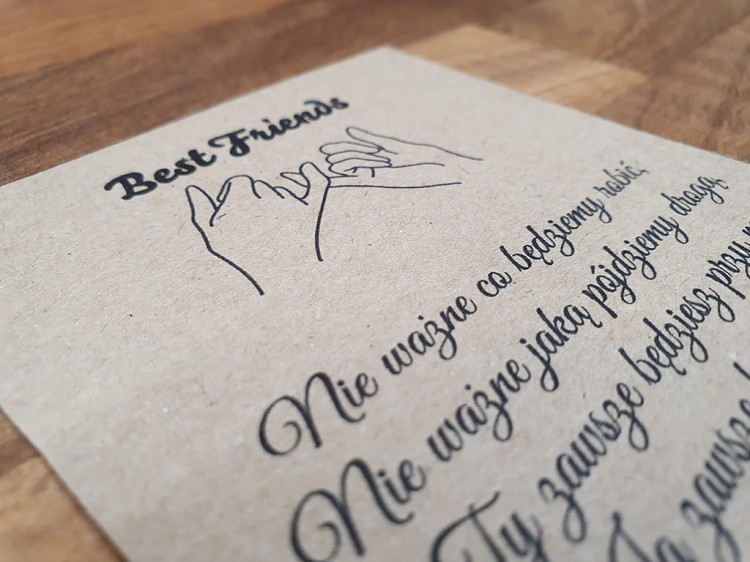 Best Friends
Nie ważne co będziemy robić,
Nie ważne jaką pójdziemy drogą,
Ty zawsze będziesz przy
Ja zawsze